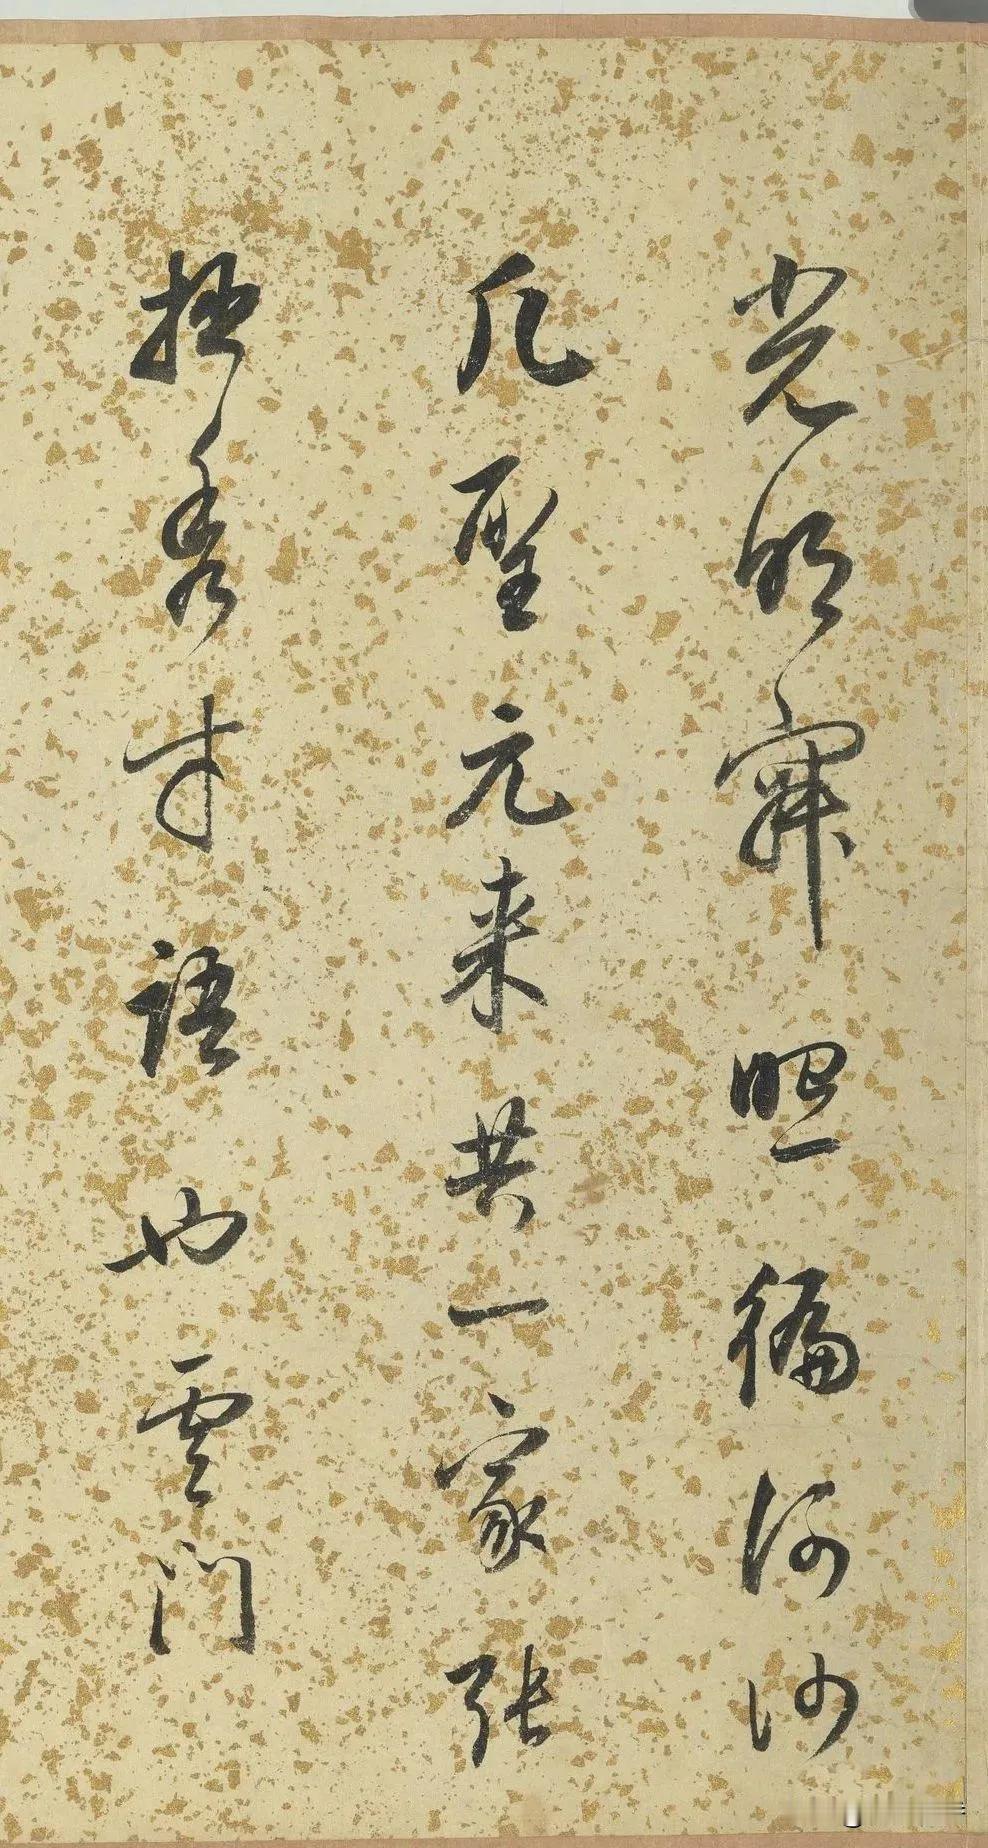 光明寂照徧河沙
凡聖元来共一家張
拙秀才語也雲門